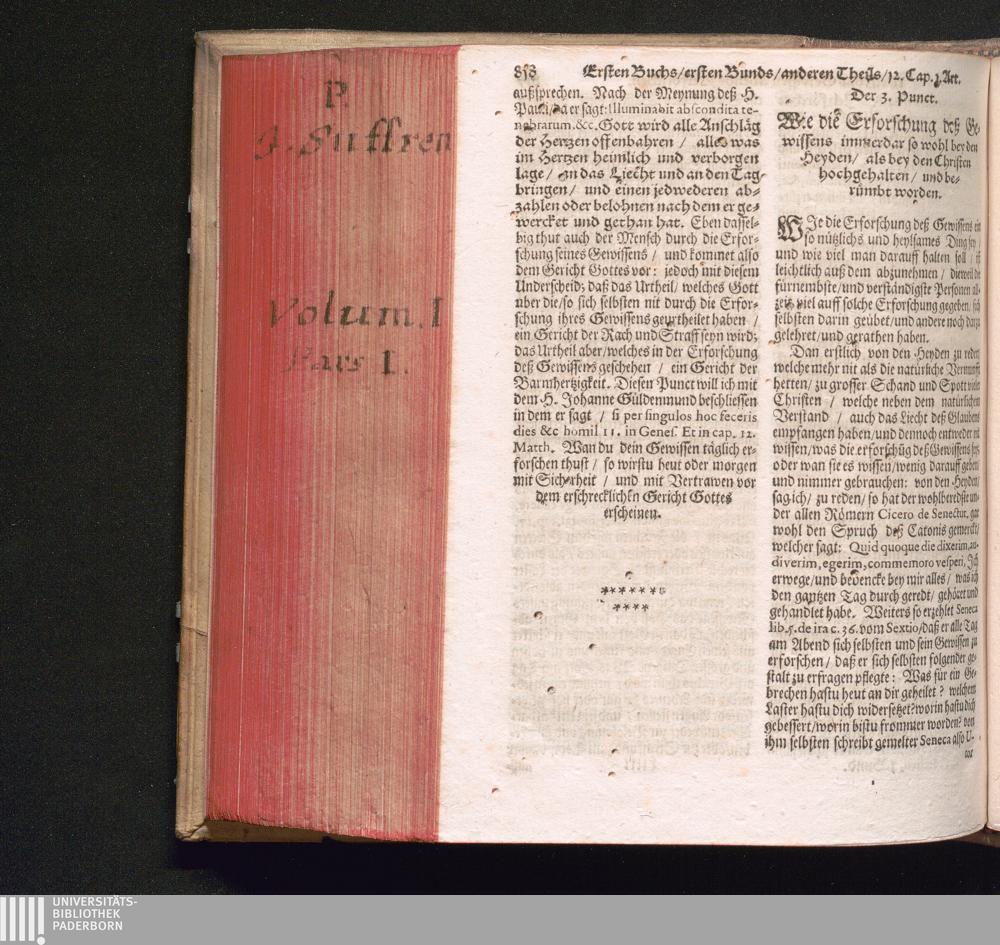 P.
J. Suffren
Volum. I
Pars I.
858 Ersten Buchs/ersten Bunds/anderen Theils/12. Cap. 3. Art.
außsprechen. Nach der Meynung deß H.
Pauli/da er sagt: Illuminabit abscondita te-
nebrarum. &c. Gott wird alle Anschläg
der Hertzen offenbahren / alles was
im Hertzen heimlich und verborgen
lage / an das Liecht und an den Tag
bringen / und einen jedwederen ab-
zahlen oder belohnen nach dem er ge-
wercket und gethan hat. Eben dassel-
big thut auch der Mensch durch die Erfor-
schung seines Gewissens / und kommet also
dem Gericht Gottes vor: jedoch mit diesem
Underscheid; daß das Urtheil/ welches Gott
uber die/so sich selbsten nit durch die Erfor-
schung ihres Gewissens geurtheilet haben /
ein Gericht der Rach und Straff seyn wird;
das Urtheil aber/welches in der Erforschung
deß Gewissens geschehen / ein Gericht der
Barmhertzigkeit. Diesen Punct will ich mit
dem H. Johanne Güldenmund beschliessen
in dem er sagt / si per singulos hoc feceris
dies &c homil 11. in Genes. Et in cap. 12.
Matth. Wan du dein Gewissen täglich er-
forschen thust / so wirstu heut oder morgen
mit Sicherheit / und mit Vertrawen vor
dem erschrecklichen Gericht Gottes
erscheinen.
*******
****
Der 3. Punct.
Wie die Erforschung deß Ge-
wissens immerdar so wohl bey den
Heyden / als bey den Christen
hochgehalten / und be-
rümbt worden.
WJe die Erforschung deß Gewissens ein
so nützlichs und heylsames Ding sey /
und wie viel man darauff halten soll / ist
leichtlich auß dem abzunehmen / dieweil die
fürnembste/und verständigste Personen al-
zeit viel auff solche Erforschung gegeben, sich
selbsten darin geübet/und andere noch darzu
gelehret/und gerathen haben.
Dan erstlich von den Heyden zu reden
welche mehr nit als die natürliche Vernunfft
hetten/ zu grosser Schand und Spott vieler
Christen / welche neben dem natürlichen
Verstand / auch das Liecht deß Glaubens
empfangen haben/und dennoch entweder nit
wissen/was die erforschūg deß Gewissens seye
oder wan sie es wissen/wenig darauff geben
und nimmer gebrauchen: von den Heyden/
sag ich/ zu reden/ so hat der wohlberedste un-
der allen Römern Cicero de Senectut, gar
wohl den Spruch deß Catonis gemerckt/
welcher sagt: Quid quoque die dixerim, au-
diverim, egerim, commemoro vesperi, Jch
erwege/und bedencke bey mir alles / was ich
den gantzen Tag durch geredt/ gehöret und
gehandlet habe. Weiters so erzehlet Seneca
lib. 5. de ira c. 36. vom Sextio/daß er alle Tag
am Abend sich selbsten und sein Gewissen zu
erforschen / daß er sich selbsten folgender ge-
stalt zu erfragen pflegte: Was für ein Ge-
brechen hastu heut an dir geheilet ? welchem
Laster hastu dich widersetzet? worin hastu dich
gebessert/worin bistu frommer worden? von
ihm selbsten schreibt gemelter Seneca also U-
UNIVERSITÄTS-
BIBLIOTHEK
PADERBORN